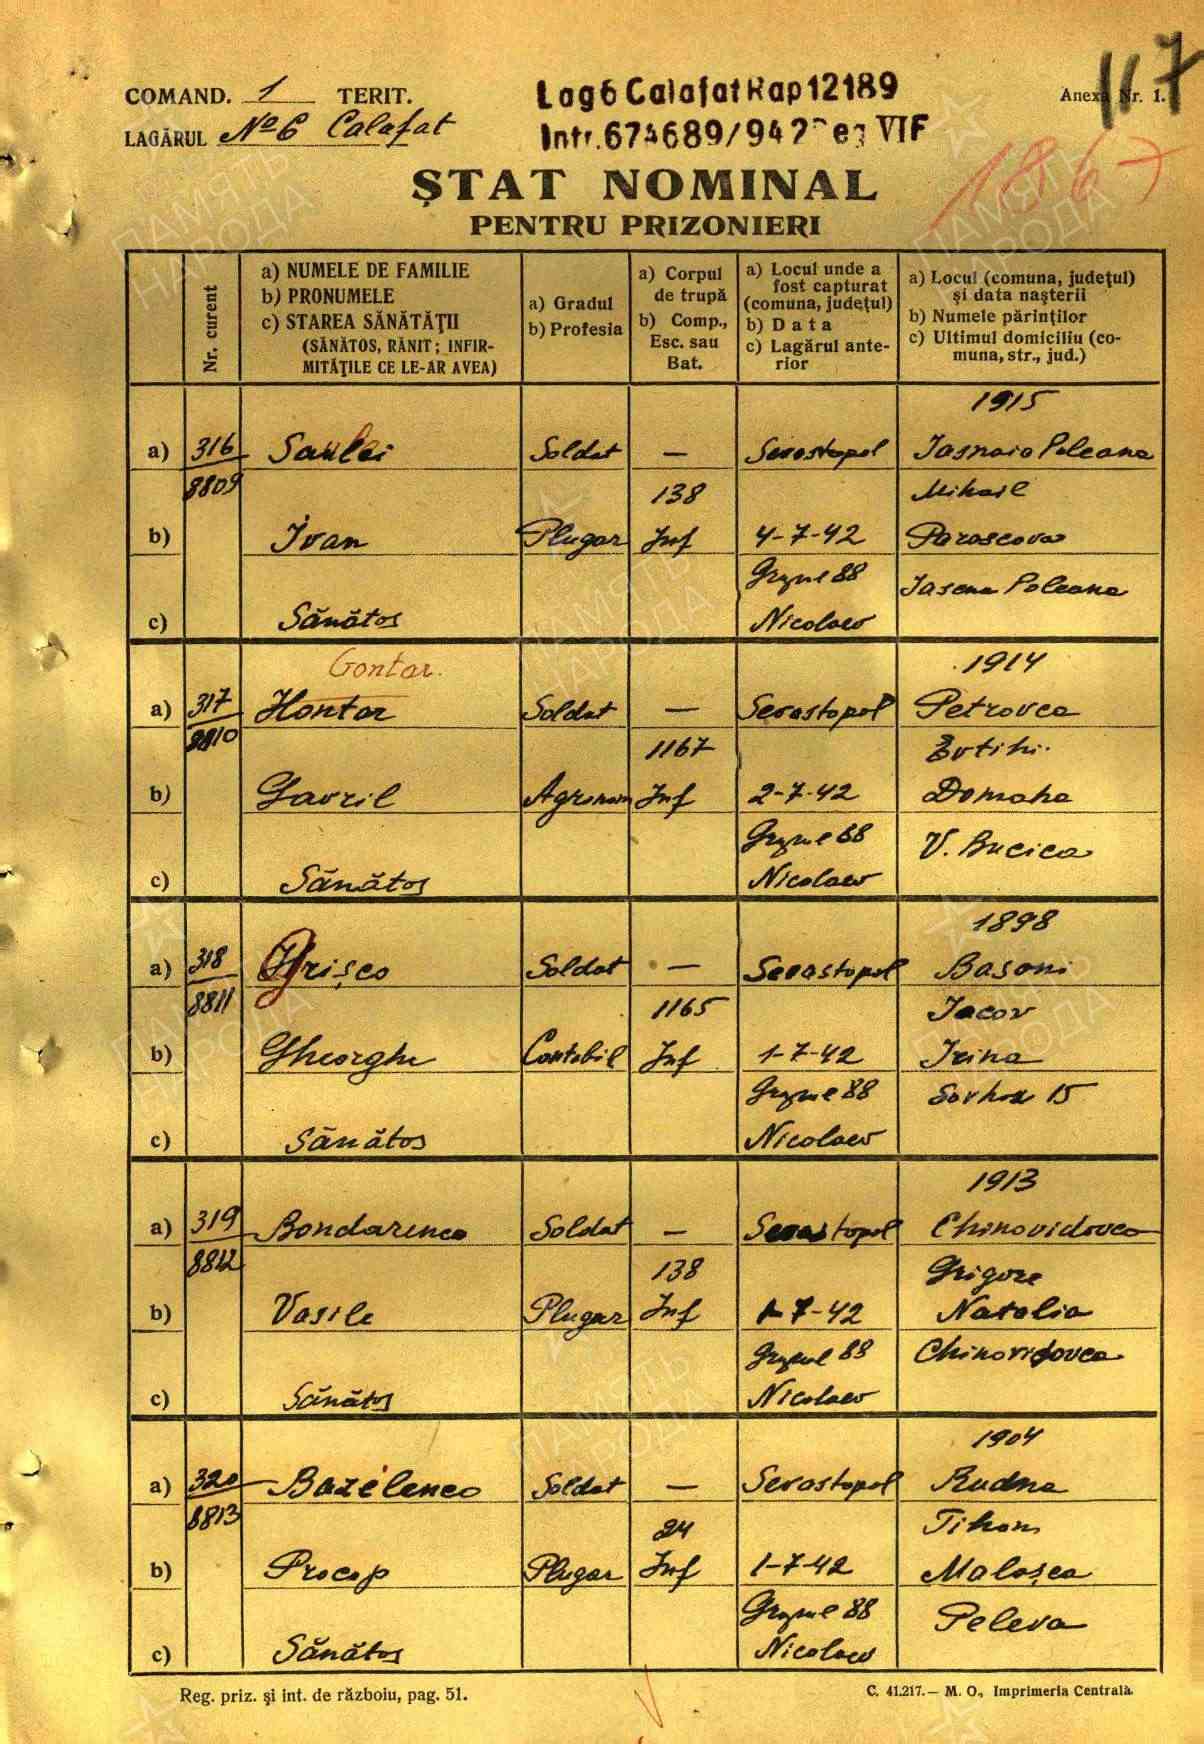 117
COMAND. 1 TERIT.
LAGĂRUL No 6 Calafat
Lag 6 Calafat Rap 12189
Intr. 674689/942 Reg VIF
Anexa Nr. 1.
1867
ȘTAT NOMINAL
PENTRU PRIZONIERI
Nr. curent
a) NUMELE DE FAMILIE
b) PRONUMELE
c) STAREA SĂNĂTĂȚII
(SĂNĂTOS, RĂNIT; INFIR-
MITĂȚILE CE LE-AR AVEA)
a) Gradul
b) Profesia
a) Corpul
de trupă
b) Comp.,
Esc. sau
Bat.
a) Locul unde a
fost capturat
(comuna, județul)
b) Data
c) Lagărul ante-
rior
a) Locul (comuna, județul)
și data nașterii
b) Numele părinților
c) Ultimul domiciliu (co-
muna, str., jud.)
1915
a) 316 Saulei Soldat — Sevastopol Iasnaia Poleana
8809 138 Mihail
b) Ivan Plugar Inf 4-7-42 Parascova
Grupul 88 Iasena Poleana
c) Sănătos Nicolaev
Gontar. 1914
a) 317 Hontar Soldat — Sevastopol Petrovca
8810 1167 Evtihi.
b) Gavril Agronom Inf 2-7-42 Domaha
Grupul 88 V. Bucica
c) Sănătos Nicolaev
1898
a) 318 Grișco Soldat — Sevastopol Basani
8811 1165 Iacov
b) Gheorghe Contabil Inf 1-7-42 Irina
Grupul 88 Sovhoz 15
c) Sănătos Nicolaev
1913
a) 319 Bondarenco Soldat — Sevastopol Chinovidovca
8812 138 Grigore
b) Vasile Plugar Inf 1-7-42 Natalia
Grupul 88 Chinovidovca
c) Sănătos Nicolaev
1904
a) 320 Bazelenco Soldat — Sevastopol Rudna
8813 24 Tihon
b) Procop Plugar Inf 1-7-42 Malașca
Grupul 88 Peleva
c) Sănătos Nicolaev
Reg. priz. și int. de războiu, pag. 51.
C. 41.217.— M. O., Imprimeria Centrală.
ПАМЯТЬ
НАРОДА